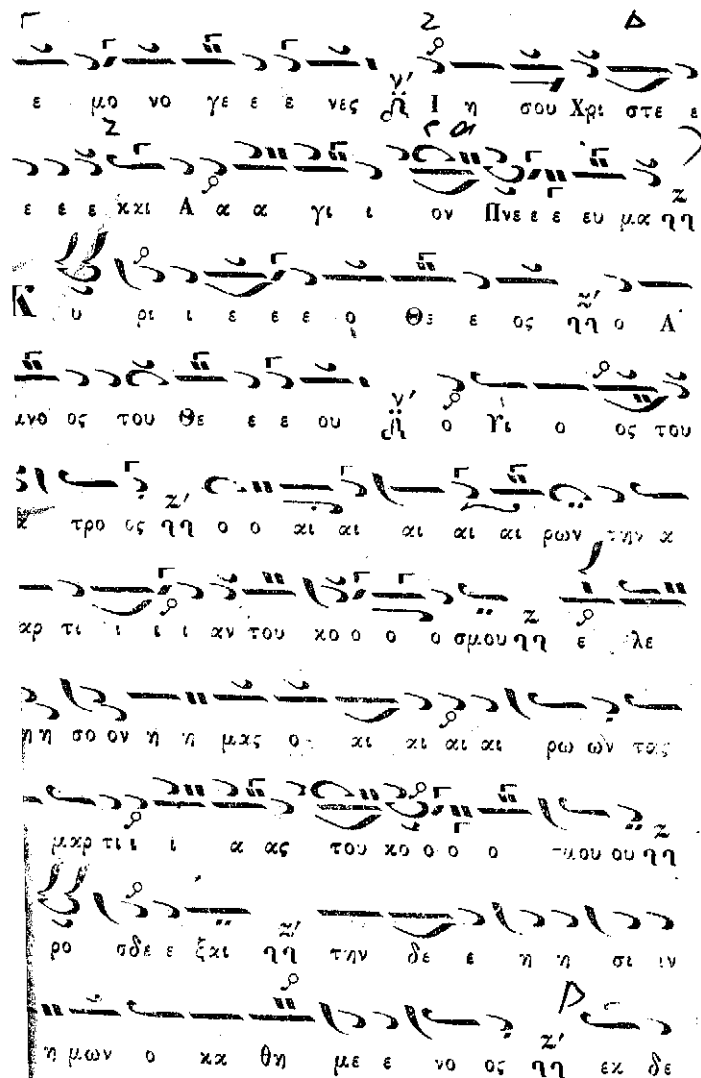 ε μο νο γε ε ε νες Ι η σου Χρι στε ε
ε ε ε και Α α α γι ι ον Πνε ε ε ευ μα
Κ υ ρι ι ε ε ε ο Θε ε ος ο Α
μνο ος του Θε ε ε ου ο Υι ο ος του
τρο ος ο ο αι αι αι αι αι ρων την α
αρ τι ι ι ι αν του κο ο ο ο σμου ε λε
η η σο ον η η μας ο αι αι αι αι ρω ων τας
μαρ τι ι ι α ας του κο ο ο ο σμου ου
ρο σδε ε ξαι την δε ε η η σι ιν
η μων ο κα θη με ε νο ος εκ δε